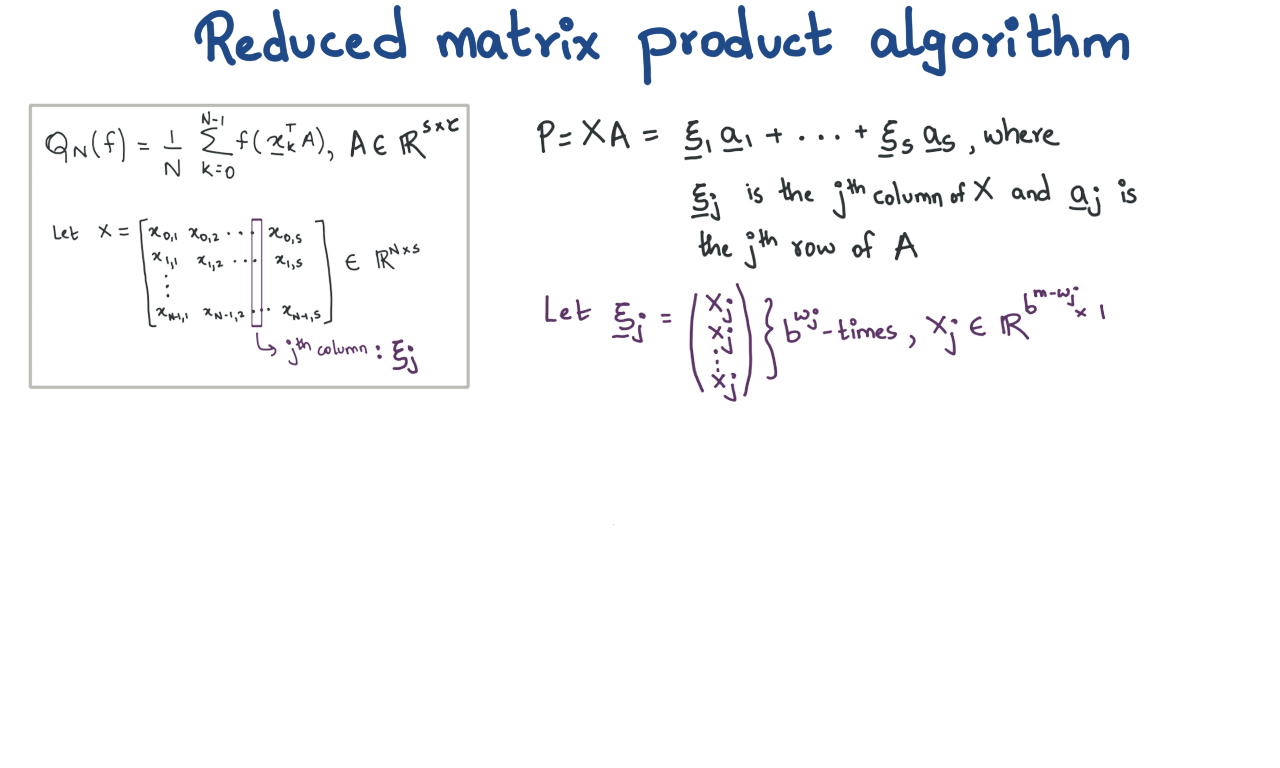 Reduced matrix product algorithm
Q_N(f) = 1/N ∑_{k=0}^{N-1} f(x_k^T A), A ∈ ℝ^{s×τ}
Let X = [x_{0,1} x_{0,2} ... x_{0,s}
x_{1,1} x_{1,2} ... x_{1,s}
⋮
x_{N-1,1} x_{N-1,2} ... x_{N-1,s}] ∈ ℝ^{N×s}
↳ j^th column : ξ_j
P = XA = ξ_1 a_1 + ... + ξ_s a_s , where
ξ_j is the j^th column of X and a_j is
the j^th row of A
Let ξ_j = (X_j X_j ⋮ X_j) } b^{w_j}-times , X_j ∈ ℝ^{b^{m-w_j} × 1}